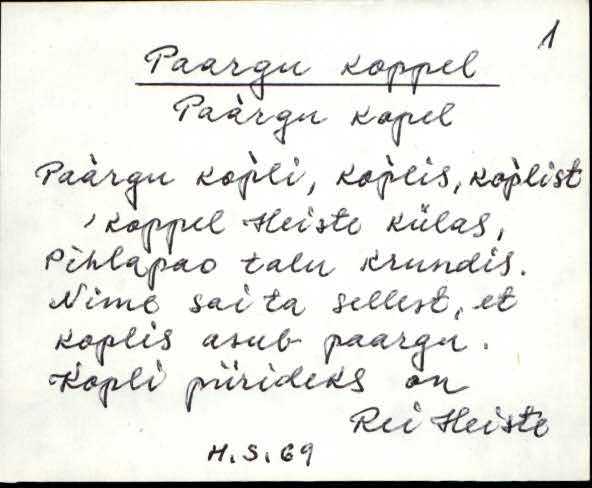 1
Paargu koppel
Paàrgu kopel
Paàrgu kop̀li, kop̀lis, kop̀list
, koppel Heiste külas,
Pihlapao talu krundis.
Nime sai ta sellest, et
koplis asub paargu.
Kopli piirideks on
Rei Heiste
H.S. 69